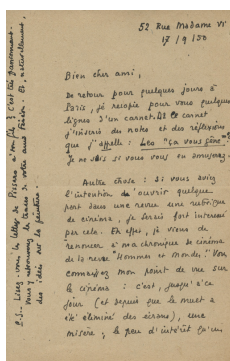 52 Rue Madame VIe
17/9/50
Bien cher ami,
De retour pour quelques jours à
Paris, je recopie pour vous quelques
lignes d'un carnet. De ce carnet
j'inscris des notes et des réflexions
que j'appelle : Les "ça vous gêne".
Je ne sais si vous vous en amuserez.
Autre chose : Si vous aviez
l'intention d'ouvrir quelque
part dans une revue une rubrique
de cinéma, je serais fort intéressé
par cela. En effet, je viens de
renoncer à ma chronique de cinéma
de la revue "Hommes et Mondes". Vous
connaissez mon point de vue sur
le cinéma : c'est, jusqu'à ce
jour (et depuis que le muet a
été éliminé des écrans), une
misère ; le peu d'intérêt qu'un
P.S. Lisez-vous les lettres de Pissarro à son fils ? C'est très passionnant.
Vous y retrouverez les traces de votre ami Fénéon. Et, naturellement,
des idées sur la peinture.